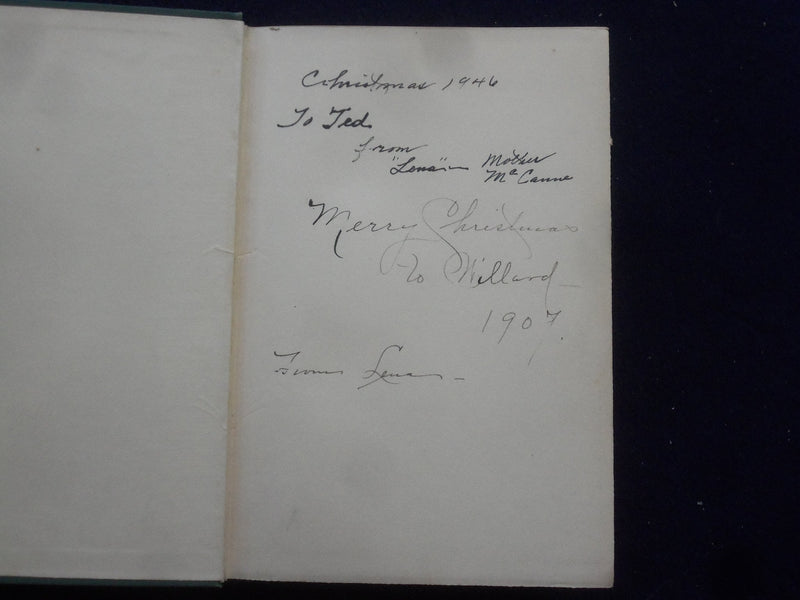 Christmas 1946
To Ted
from
"Lena" - Mother
McCanne
Merry Christmas
To Willard -
1907.
From Lena -